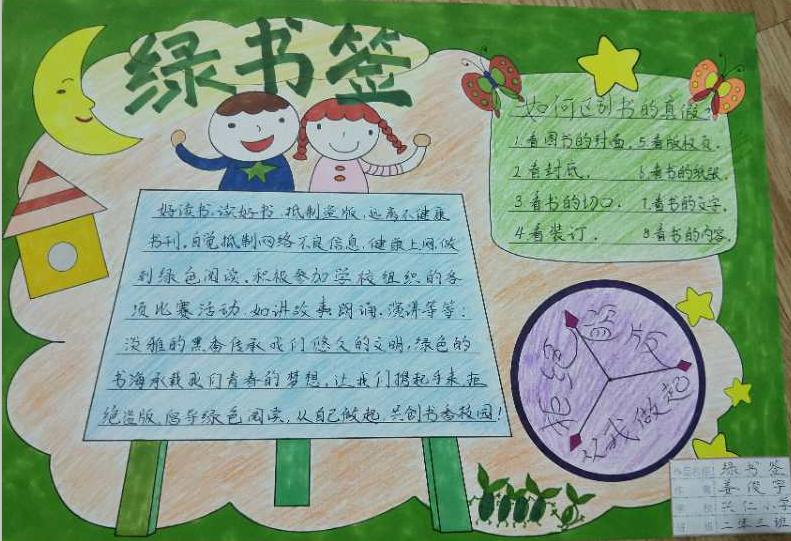 绿书签
好读书.读好书.抵制盗版,远离不健康
书刊.自觉抵制网络不良信息.健康上网,做
到绿色阅读.积极参加学校组织的各
项比赛活动.如讲故事.朗诵.演讲等等:
淡雅的墨香传承我们悠久的文明,绿色的
书海承载我们青春的梦想,让我们携起手来拒
绝盗版,倡导绿色阅读,从自己做起.共创书香校园!
如何区别书的真假?
1.看图书的封面.5.看版权页.
2.看封底. 6.看书的纸张.
3.看书的切口. 7.看书的文字.
4.看装订. 8.看书的内容.
拒绝盗版
从我做起
作品名称 绿书签
作 者 姜俊宇
学 校 兴仁小学
班 级 二年三班